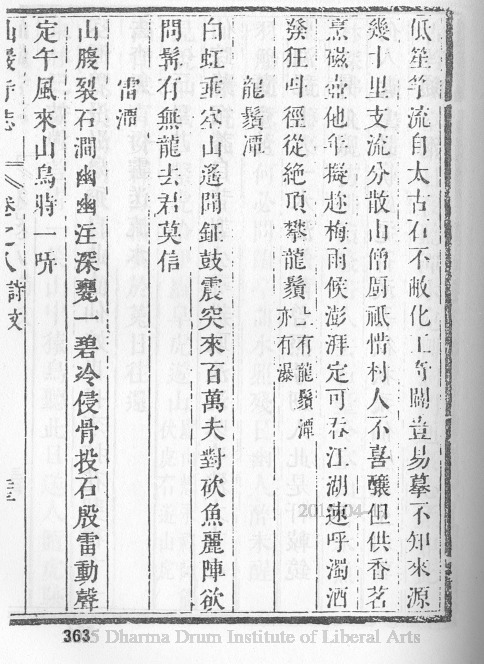 低笙等流自太古石不敝化工奇闢豈易摹不知來源
幾十里支流分散山僧厨祗惜村人不喜釀但供香茗
烹磁壺他年擬趁梅雨候澎湃定可吞江湖速呼濁酒
發狂呌徑從絶頂攀龍鬚上有龍鬚潭亦有瀑
龍鬚潭
白虹垂空山遙聞鉦鼓震突來百萬夫對砍魚麗陣欲
問髯有無龍去君莫信
雷潭
山腹裂石澗幽幽注深甕一碧冷侵骨投石殷雷動聲
定午風來山鳥時一哢
山嚴寺志 卷之八 詩文
363
5 Dharma Drum Institute of Liberal Arts